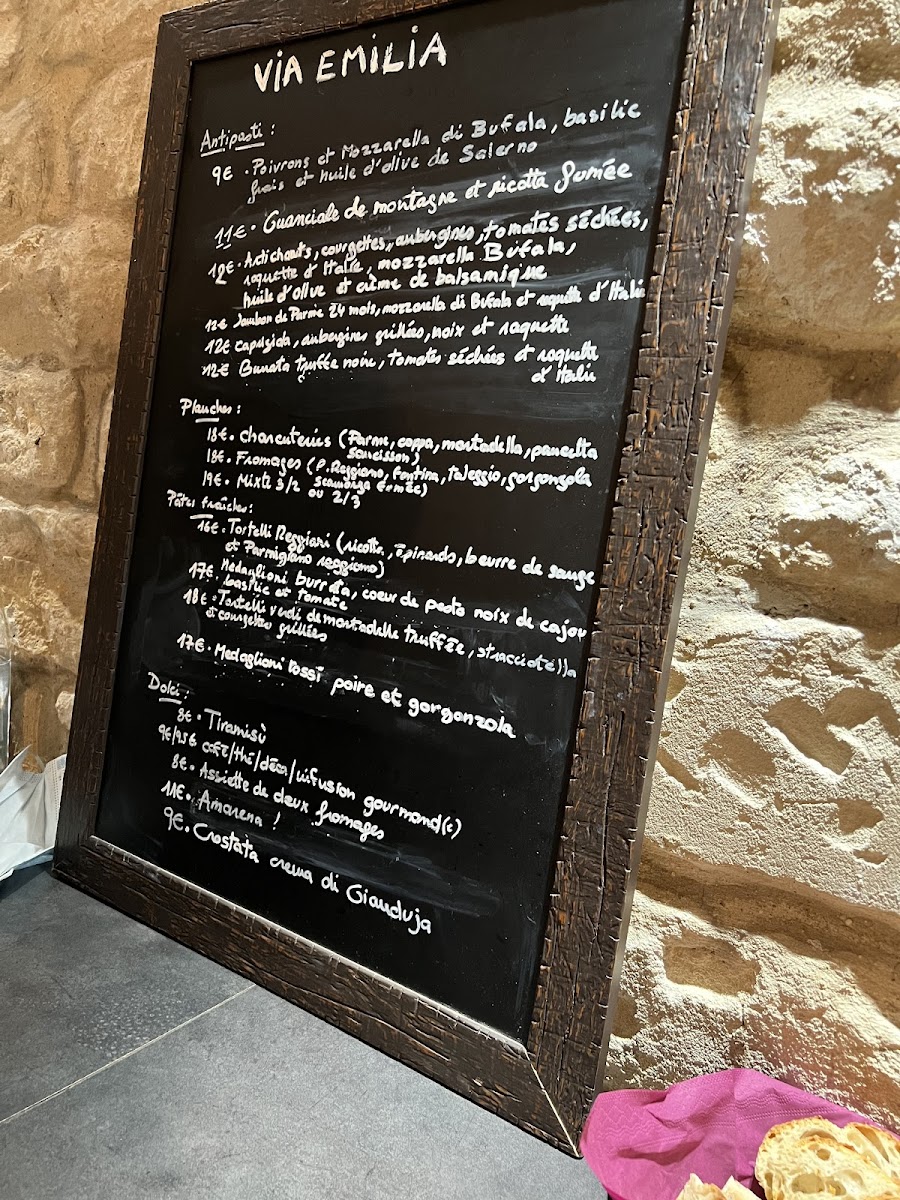 VIA EMILIA
Antipasti :
9€ · Poivrons et Mozzarella di Bufala, basilic
frais et huile d'olive de Salerno
11€ · Guanciale de montagne et ricotta fumée
12€ · Artichauts, courgettes, aubergines, tomates séchées,
roquette d'Italie, mozzarella Bufala,
huile d'olive et crème de balsamique
12€ Jambon de Parme 24 mois, mozzarella di Bufala et roquette d'Italie
12€ aubergines grillées, noix et roquette
12€ Burrata truffée noire, tomates séchées et roquette
d'Italie
Planches :
18€ · Charcuteries (Parme, coppa, mortadella, pancetta
saucisson)
18€ · Fromages (P. Reggiano, Fontina, taleggio, gorgonzola
scamorza fumée)
19€ · Mixte 3/2 ou 2/3
Pâtes fraîches :
16€ · Tortelli Reggiani (ricotta, épinards, beurre de sauge
et Parmigiano reggiano)
17€ · Medaglioni burrata, coeur de pesto noix de cajou
basilic et tomate
18€ · Tortelli verdi de mortadelle truffée, stracciatella
et courgettes grillées
17€ · Medaglioni rossi poire et gorgonzola
Dolci :
8€ · Tiramisù
9€/9,5€ café/thé/déca/infusion gourmand(e)
8€ · Assiette de deux fromages
11€ · Amarena !
9€ · Crostata crema di Gianduja